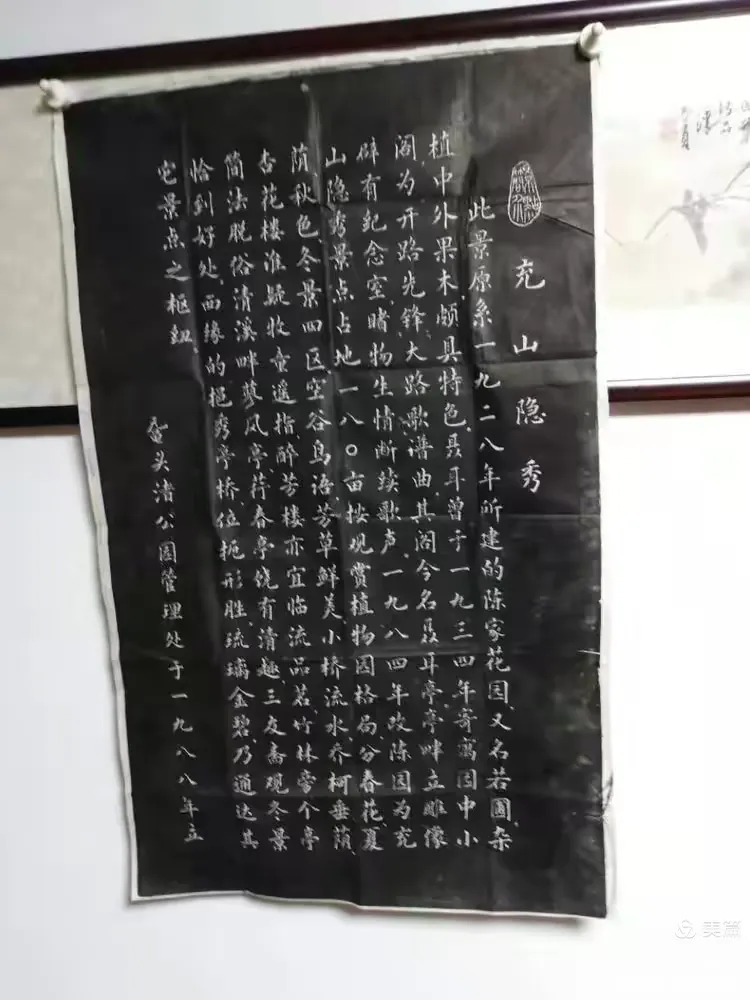 充山隐秀
此景原系一九二八年所建的陈家花园,又名若圃,杂
植中外果木,颇具特色,聂耳曾于一九三四年寄寓园中小
阁,为开路先锋、大路歌谱曲,其阁今名聂耳亭,亭畔立雕像,
辟有纪念室,睹物生情,断续歌声,一九八四年改陈园为充
山隐秀景点,占地一八〇亩,按观赏植物园格局,分春花、夏
荫、秋色、冬景四区,空谷鸟语,芳草鲜美,小桥流水,乔柯垂荫,
杏花楼准疑牧童遥指,醉芳楼亦宜临流品茗,竹林旁个亭
简洁脱俗,清溪畔蓼风亭、荇春亭饶有清趣,三友斋观冬景
恰到好处,西缘的挹秀亭桥,位扼形胜,琉璃金碧,乃通达其
它景点之枢纽。
鼋头渚公园管理处于一九八八年立
美篇